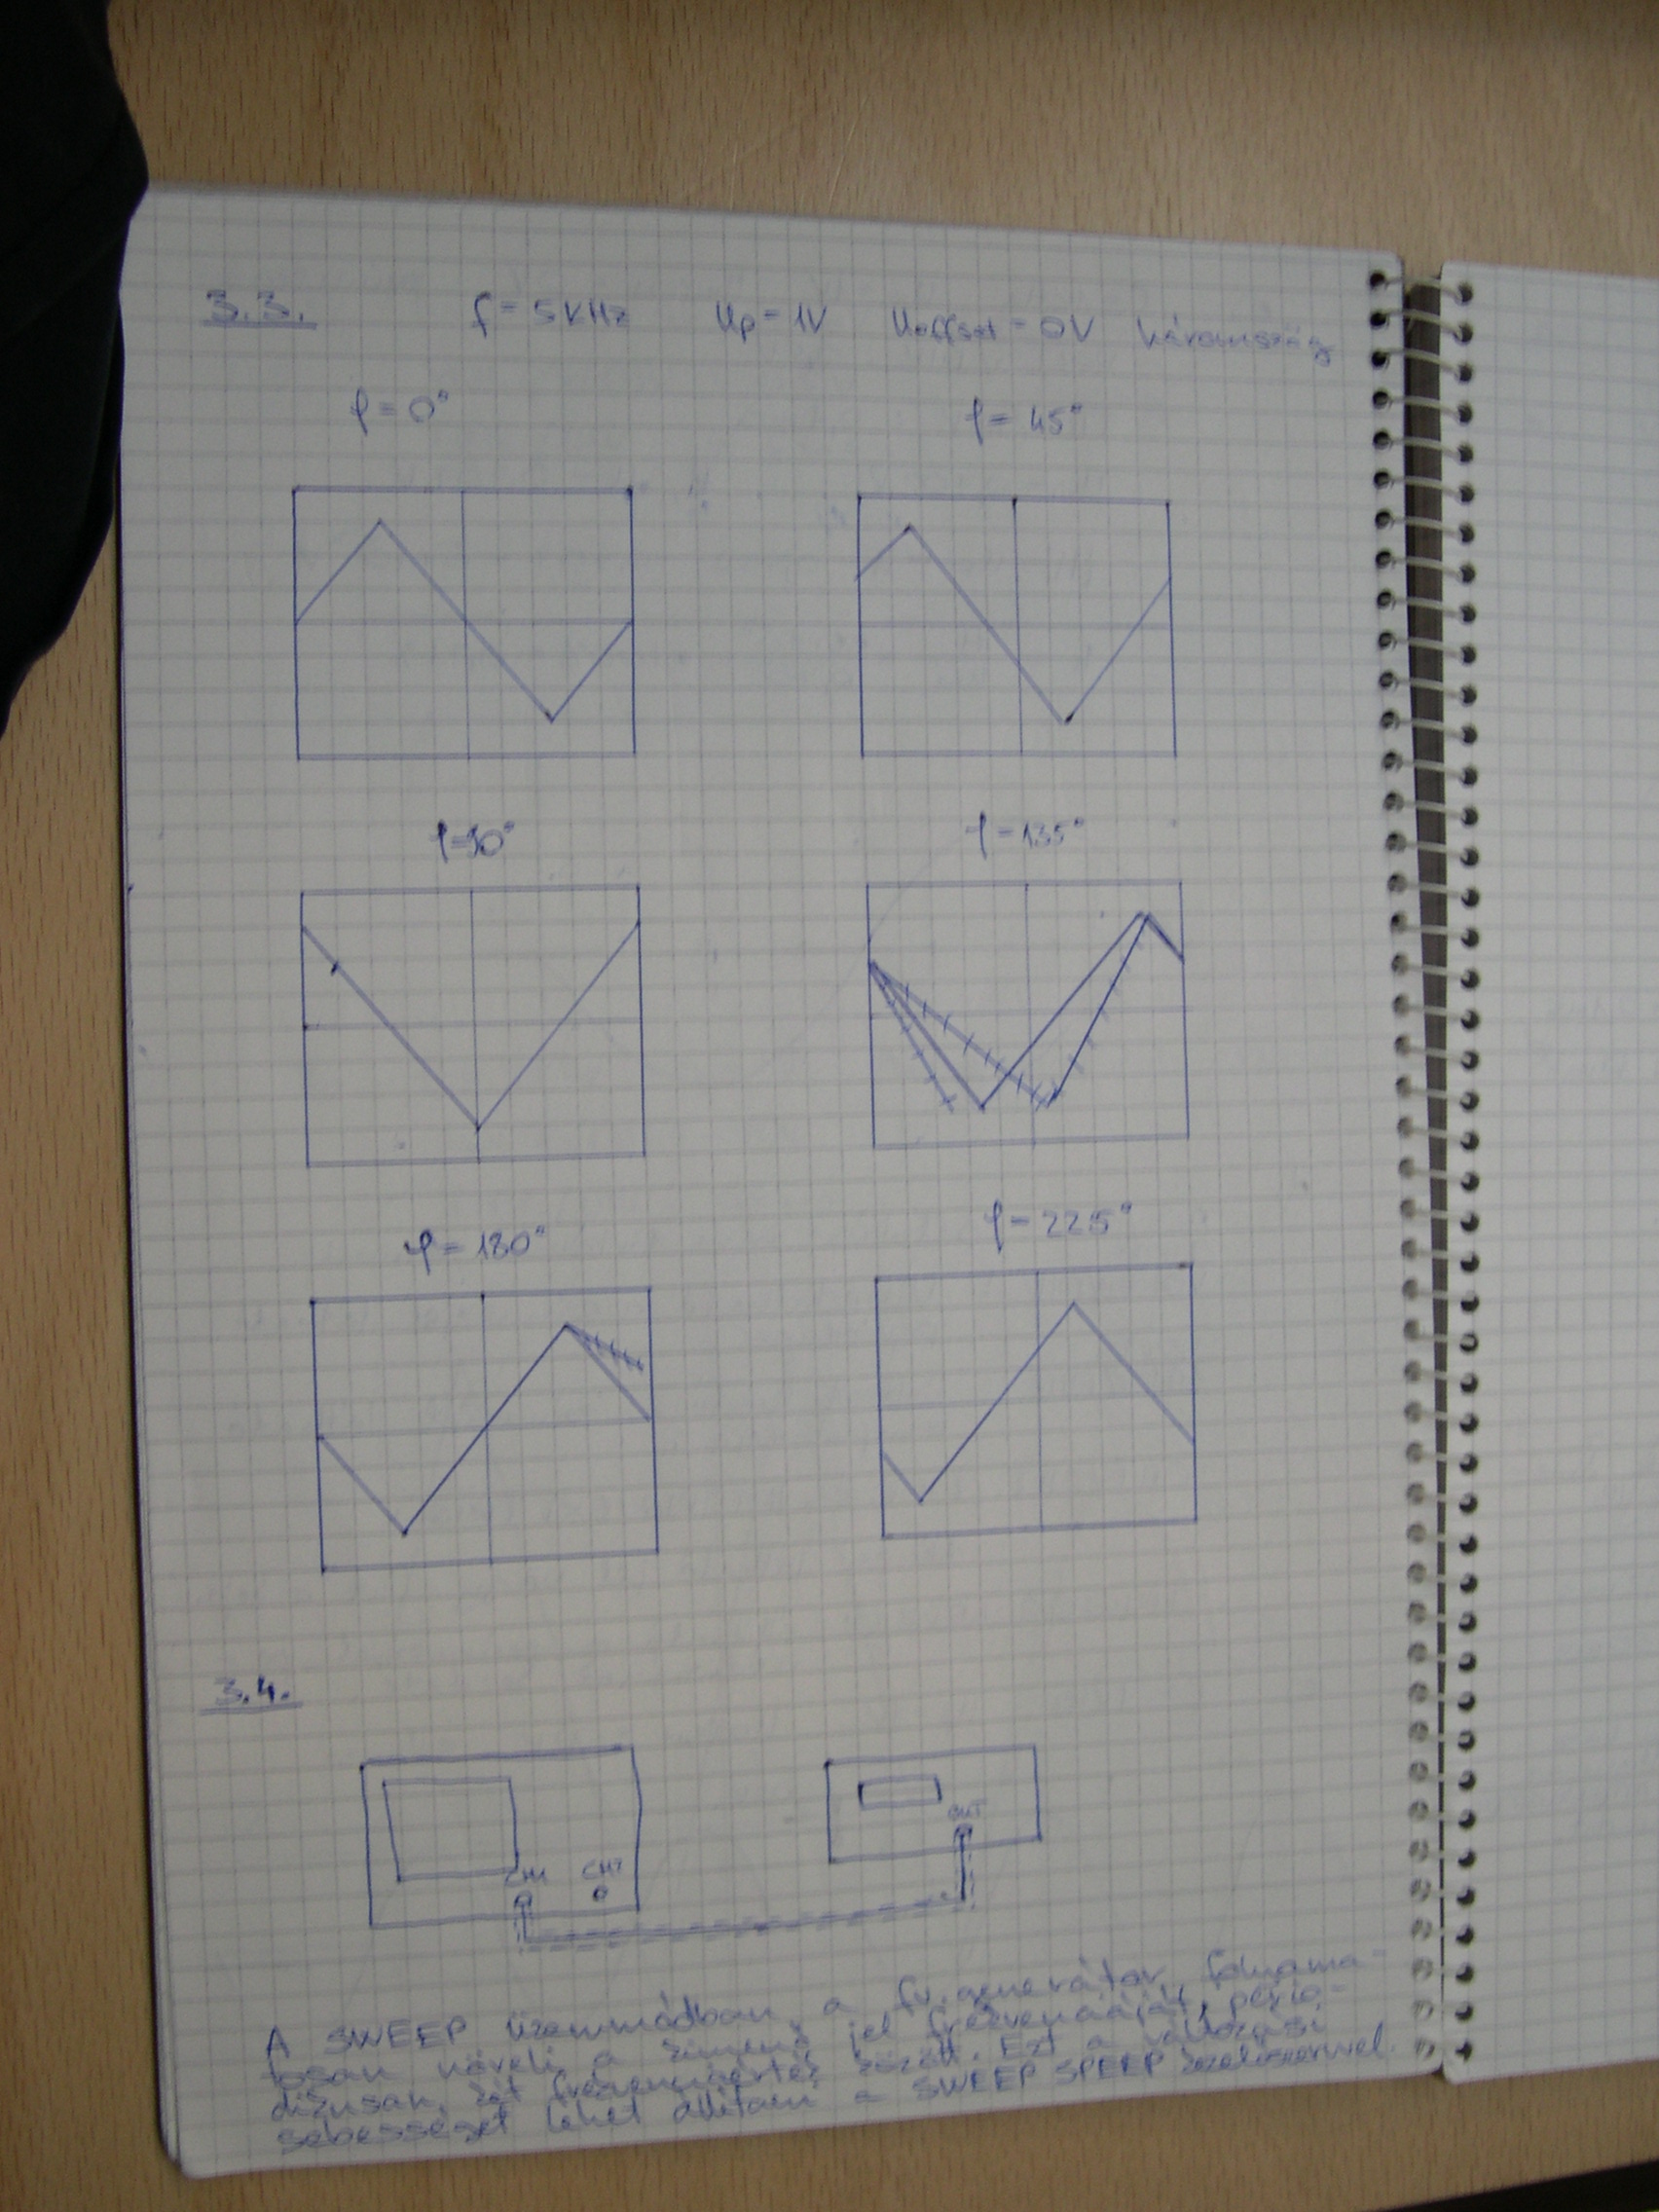 3.3. f=5kHz Up=1V Uoffset=0V háromszög
φ=0° φ=45°
φ=90° φ=135°
φ=180° φ=225°
3.4.
OUT
CH1 CH2
A SWEEP üzemmódban a fv.generátor folyama-
tosan növeli a kimenő jel frekvenciáját, perio-
dikusan, két frekvenciaérték között. Ezt a változási
sebességet lehet állítani a SWEEP SPEEP kezelőszervvel.